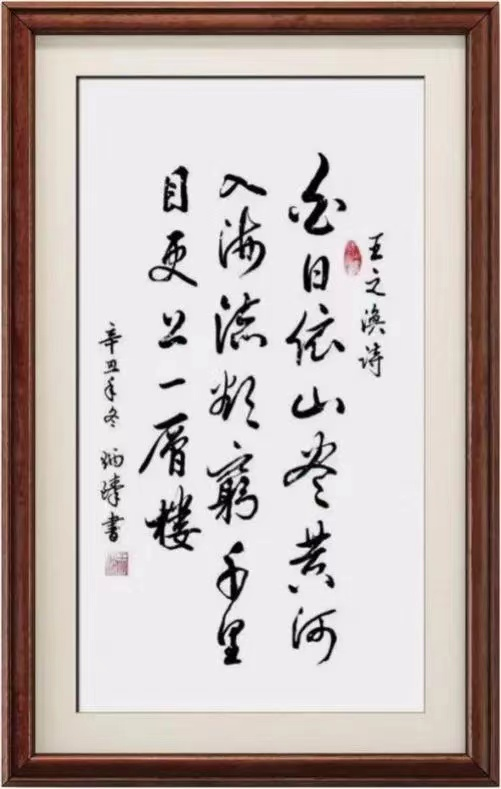 王之涣诗
白日依山尽黄河
入海流欲窮千里
目更上一層楼
辛丑年冬 炳書